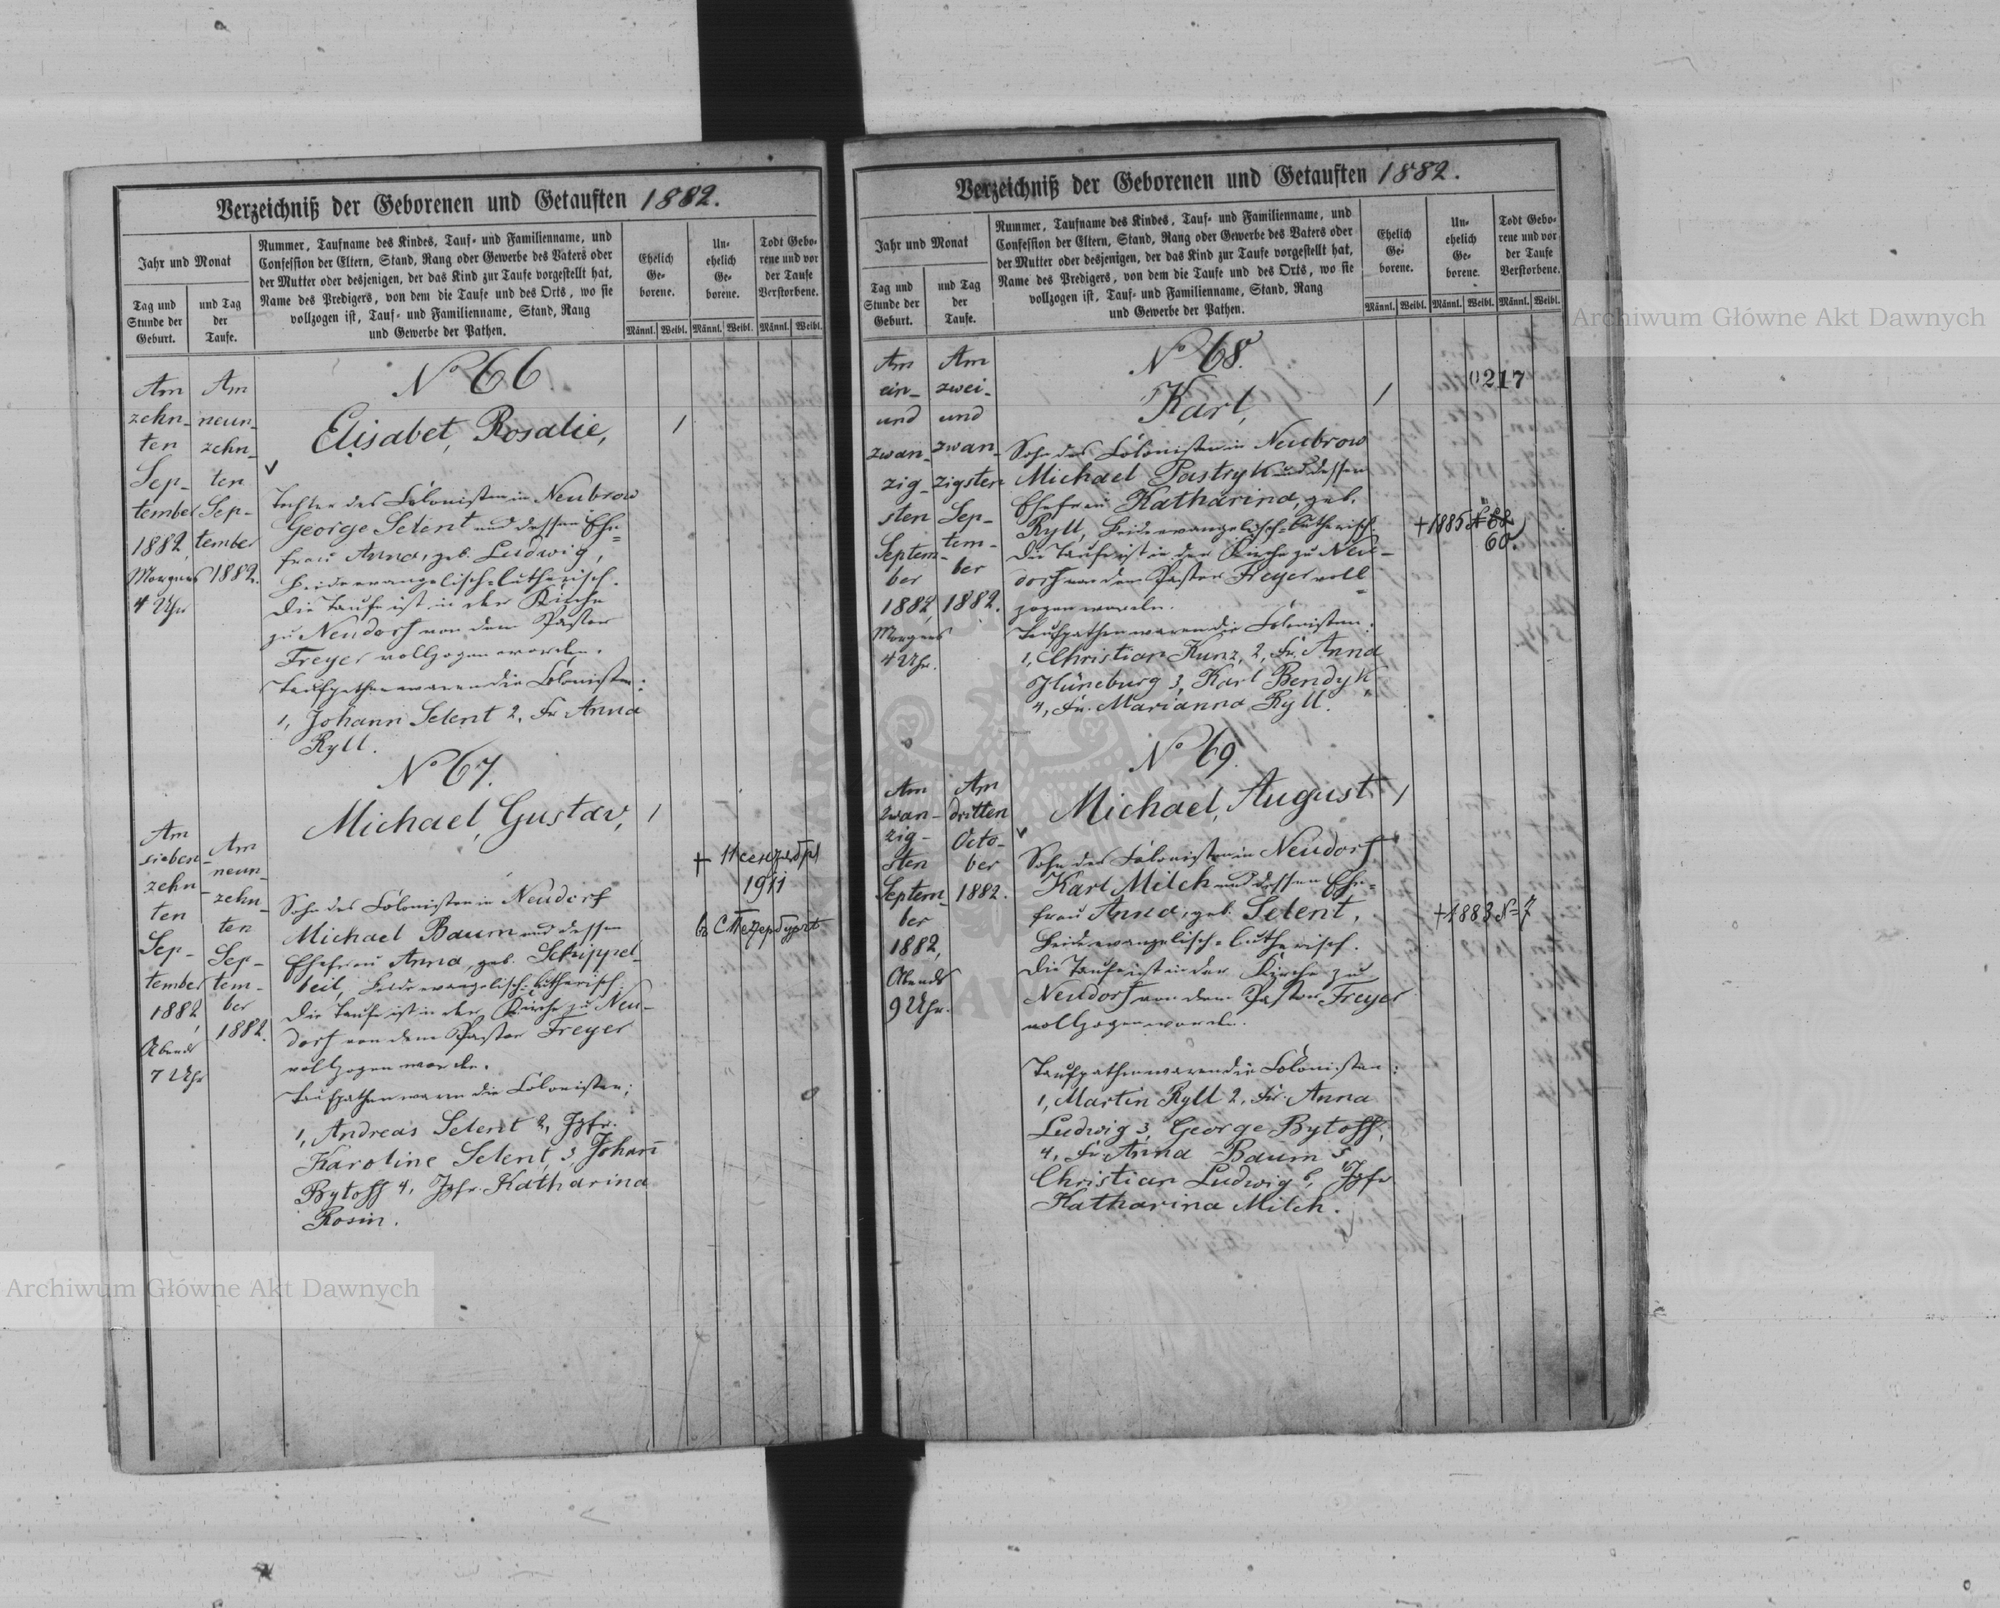 Verzeichniß der Geborenen und Getauften 1882.
Jahr und Monat
Tag und
Stunde der
Geburt.
und Tag
der
Taufe.
Nummer, Taufname des Kindes, Tauf- und Familienname, und
Confession der Eltern, Stand, Rang oder Gewerbe des Vaters oder
der Mutter oder desjenigen, der das Kind zur Taufe vorgestellt hat,
Name des Predigers, von dem die Taufe und des Orts, wo sie
vollzogen ist, Tauf- und Familienname, Stand, Rang
und Gewerbe der Pathen.
Ehelich
Ge-
borene.
Un-
ehelich
Ge-
borene.
Todt Gebo-
rene und vor
der Taufe
Verstorbene.
Männl. Weibl. Männl. Weibl. Männl. Weibl.
Am
zehn-
ten
Sep-
tember
1882
Morgens
4 Uhr
Am
neun-
zehn-
ten
Sep-
tember
1882.
No 66
Elisabet, Rosalie,
Tochter des Colonisten in Neubrow
George Selent und dessen Ehe=
frau Anna, geb. Ludwig,
beide evangelisch=lutherisch.
Die Taufe ist in der Kirche
zu Neudorf von dem Pastor
Freyer vollzogen worden.
Taufpathen waren die Colonisten:
1, Johann Selent 2, Fr. Anna
Ryll.
Am
sieben-
zehn-
ten
Sep-
tember
1882,
Abends
7 Uhr
Am
neun-
zehn-
ten
Sep-
tem-
ber
1882.
No 67.
Michael, Gustav,
Sohn des Colonisten in Neudorf
Michael Baum und dessen
Ehefrau Anna, geb. Schippel-
beil, beide evangelisch=lutherisch.
Die Taufe ist in der Kirche zu Neu-
dorf von dem Pastor Freyer
vollzogen worden.
Taufpathen waren die Colonisten:
1, Andreas Selent 2, Jgfr.
Karoline Selent, 3, Johan̅
Bytoff 4, Jgfr. Katharina
Rosin.
1911
Verzeichniß der Geborenen und Getauften 1882.
Jahr und Monat
Tag und
Stunde der
Geburt.
und Tag
der
Taufe.
Nummer, Taufname des Kindes, Tauf- und Familienname, und
Confession der Eltern, Stand, Rang oder Gewerbe des Vaters oder
der Mutter oder desjenigen, der das Kind zur Taufe vorgestellt hat,
Name des Predigers, von dem die Taufe und des Orts, wo sie
vollzogen ist, Tauf- und Familienname, Stand, Rang
und Gewerbe der Pathen.
Ehelich
Ge-
borene.
Un-
ehelich
Ge-
borene.
Todt Gebo-
rene und vor
der Taufe
Verstorbene.
Männl. Weibl. Männl. Weibl. Männl. Weibl.
0217
Am
ein-
und
zwan-
zig-
sten
Septem-
ber
1882
Morgens
4 Uhr.
Am
zwei-
und
zwan-
zigsten
Sep-
tem-
ber
1882.
No 68.
Karl,
Sohn des Colonisten in Neubrow
Michael Pastryk und dessen
Ehefrau Katharina, geb.
Ryll, beide evangelisch=lutherisch.
Die Taufe ist in der Kirche zu Neu-
dorf von dem Pastor Freyer voll=
zogen worden.
Taufpathen waren die Colonisten:
1, Christian Kunz, 2, Fr. Anna
Hüneburg 3, Karl Bendyk
4, Fr. Marianna Ryll.
+ 1885
60.
Am
zwan-
zig-
sten
Septem-
ber
1882,
Abends
9 Uhr.
Am
dritten
Octo-
ber
1882.
No 69.
Michael, August
Sohn des Colonisten in Neudorf
Karl Milch und dessen Ehe=
frau Anna, geb. Selent,
beide evangelisch=lutherisch.
Die Taufe ist in der Kirche zu
Neudorf von dem Pastor Freyer
vollzogen worden.
Taufpathen waren die Colonisten:
1, Martin Ryll 2, Fr. Anna
Ludwig 3, George Bytoff,
4, Fr. Anna Baum 5,
Christian Ludwig 6, Jgfr
Katharina Milch.
+ 1883 N= 7
Archiwum Główne Akt Dawnych
Archiwum Główne Akt Dawnych